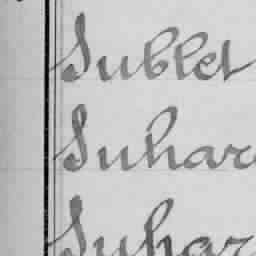 Sublet
Suhar
Suhar